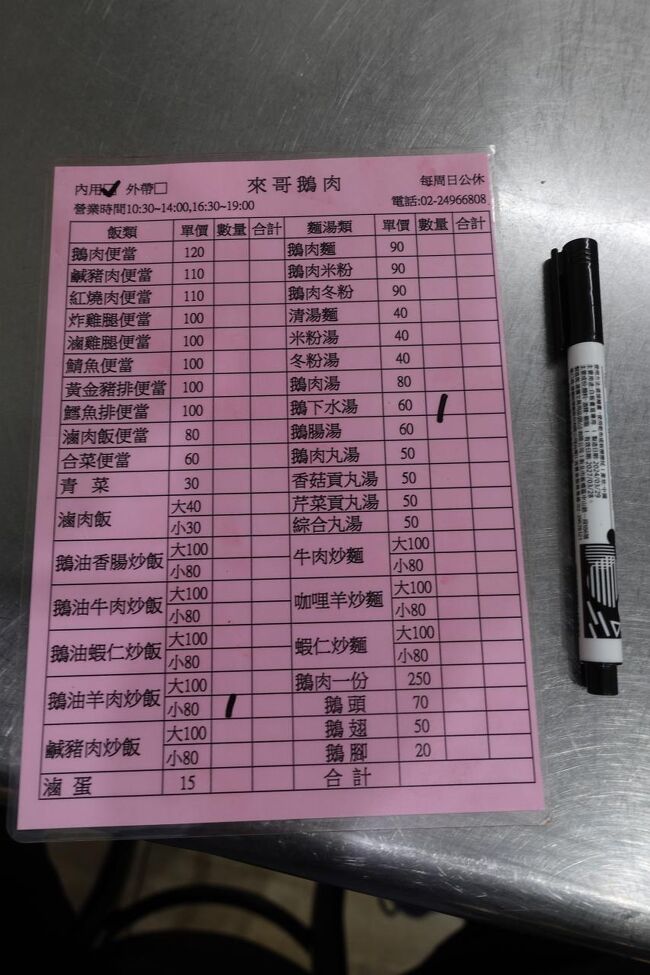 來哥鵝肉
內用☑ 外帶□ 每周日公休
營業時間10:30~14:00,16:30~19:00 電話:02-24966808
飯類 單價 數量 合計 麵湯類 單價 數量 合計
鵝肉便當 120 鵝肉麵 90
鹹豬肉便當 110 鵝肉米粉 90
紅燒肉便當 110 鵝肉冬粉 90
炸雞腿便當 100 清湯麵 40
滷雞腿便當 100 米粉湯 40
鯖魚便當 100 冬粉湯 40
黃金豬排便當 100 鵝肉湯 80
鱈魚排便當 100 鵝下水湯 60 /
滷肉飯便當 80 鵝腸湯 60
合菜便當 60 鵝肉丸湯 50
青 菜 30 香菇貢丸湯 50
滷肉飯 大40 芹菜貢丸湯 50
小30 綜合丸湯 50
鵝油香腸炒飯 大100 牛肉炒麵 大100
小80 小80
鵝油牛肉炒飯 大100 咖哩羊炒麵 大100
小80 小80
鵝油蝦仁炒飯 大100 蝦仁炒麵 大100
小80 小80
鵝油羊肉炒飯 大100 鵝肉一份 250
小80 / 鵝 頭 70
鹹豬肉炒飯 大100 鵝 翅 50
小80 鵝 腳 20
滷 蛋 15 合 計
2024/03/29
2027/03/28